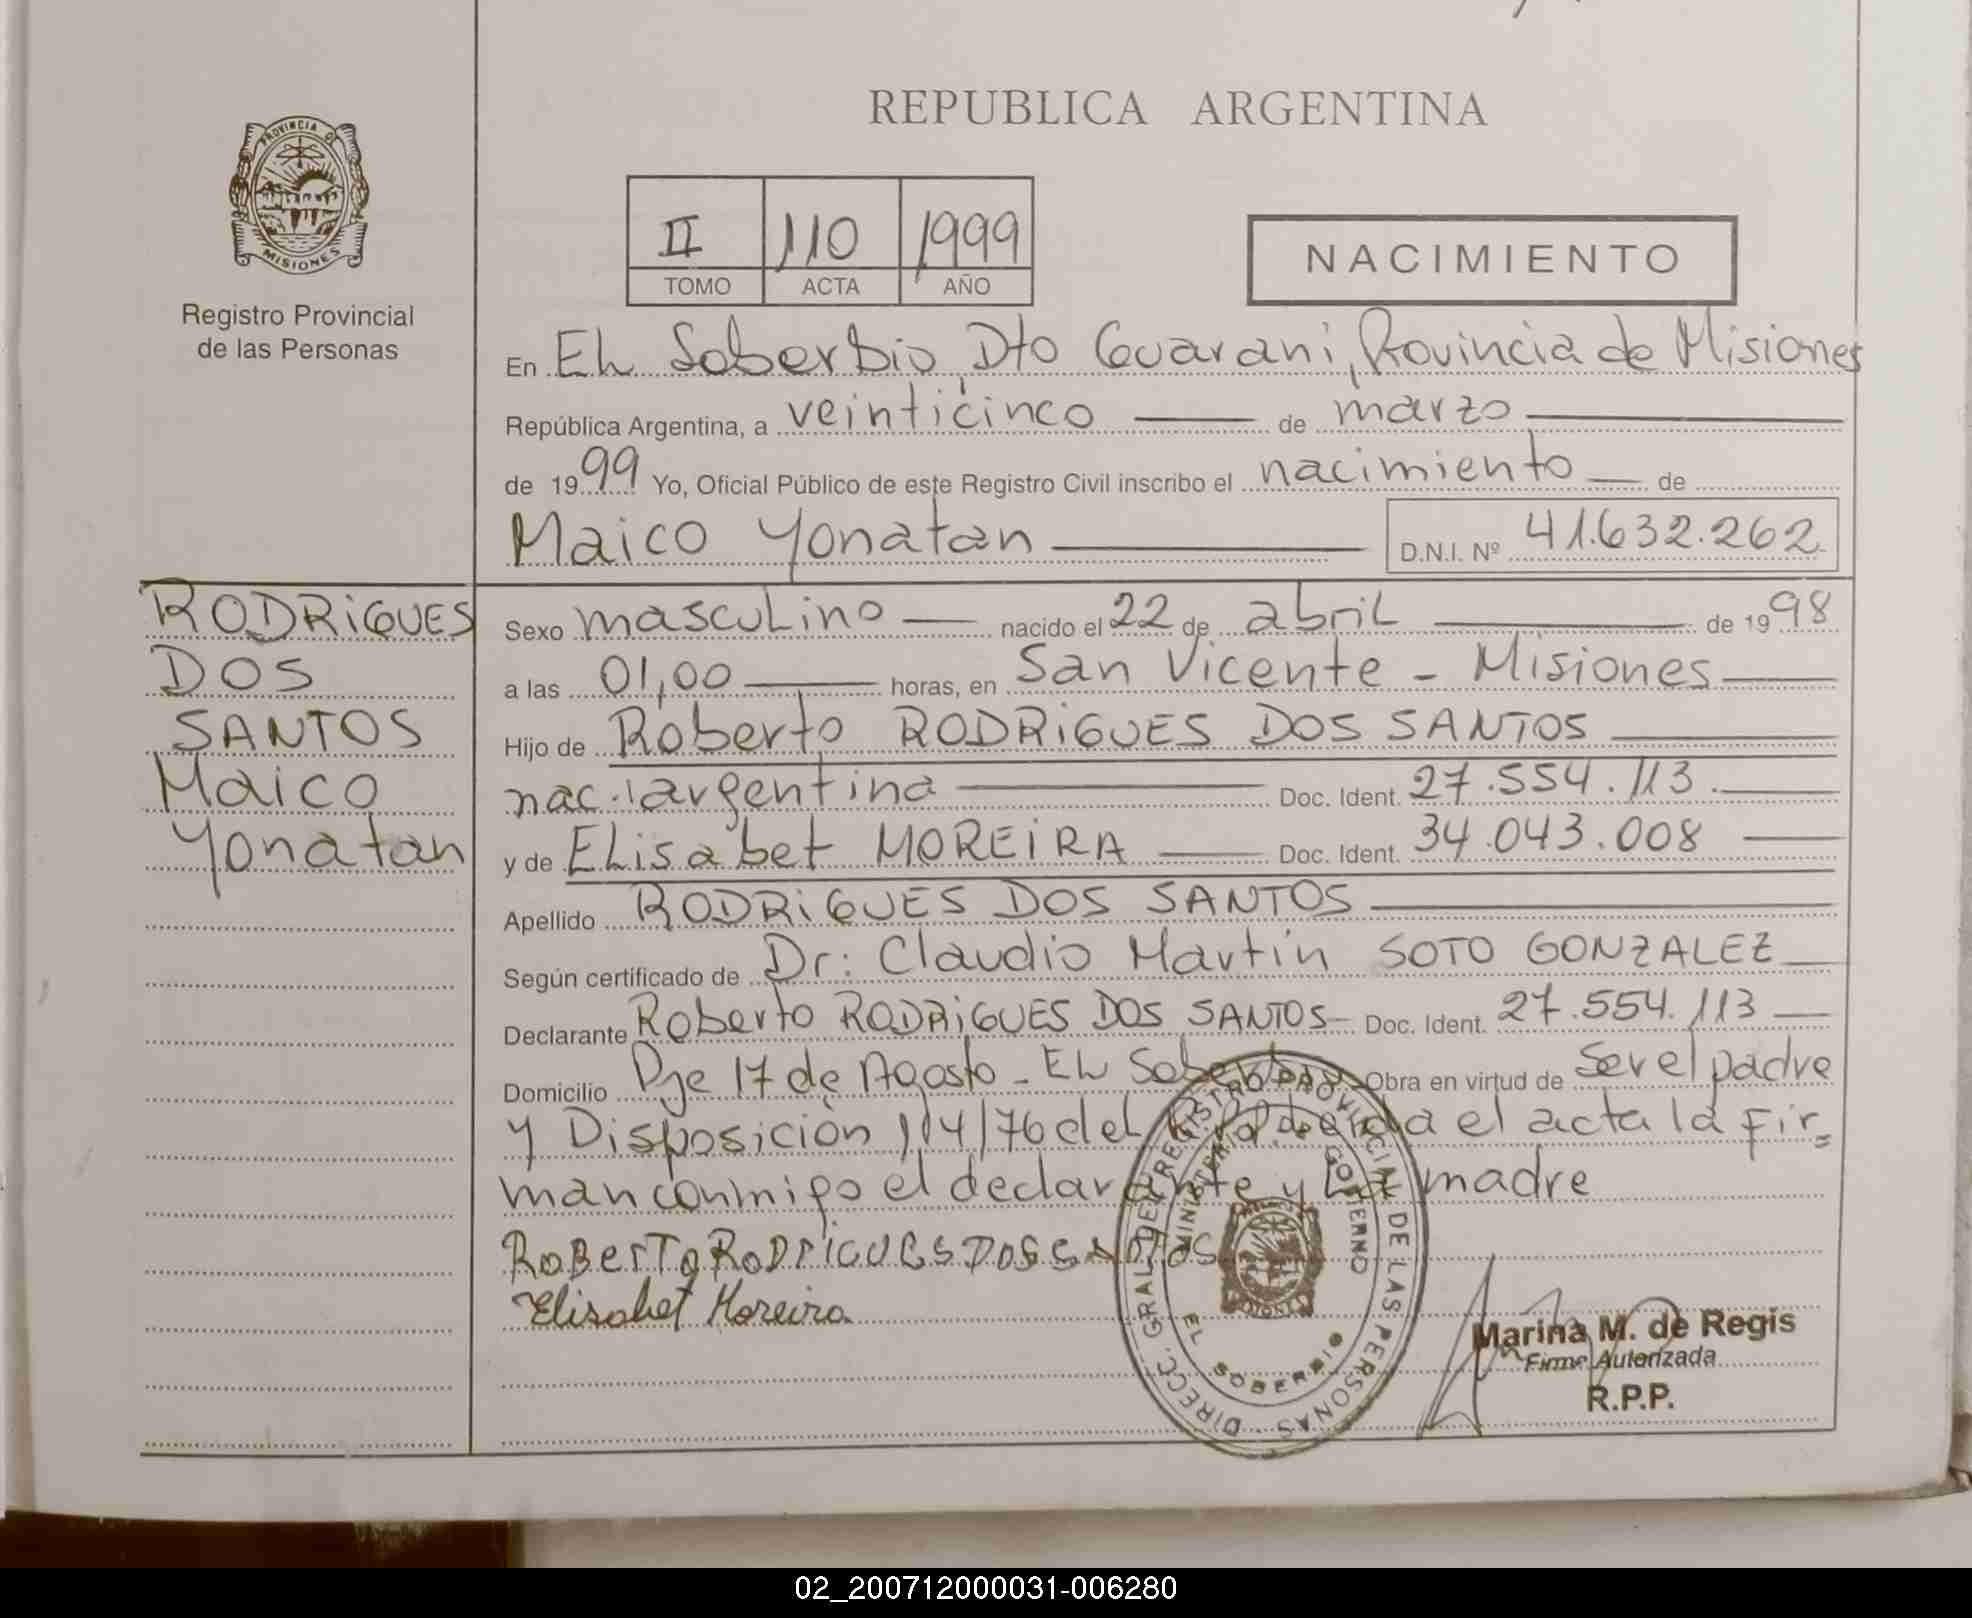 REPUBLICA ARGENTINA
PROVINCIA DE
MISIONES
Registro Provincial
de las Personas
II 110 1999
TOMO ACTA AÑO
NACIMIENTO
En EL Soberbio, Dto Guarani, Provincia de Misiones
República Argentina, a veinticinco de marzo
de 1999 Yo, Oficial Público de este Registro Civil inscribo el nacimiento de
Maico Yonatan D.N.I. Nº 41.632.262
RODRIGUES
DOS
SANTOS
Maico
Yonatan
Sexo mascuLino nacido el 22 de abriL de 1998
a las 01,00 horas, en San Vicente - Misiones
Hijo de Roberto RODRIGUES DOS SANTOS
nac. argentina Doc. Ident. 27.554.113.
y de ELisabet MOREIRA Doc. Ident. 34.043.008
Apellido RODRIGUES DOS SANTOS
Según certificado de Dr: Claudio Martín SOTO GONZALEZ
Declarante Roberto RODRIGUES DOS SANTOS Doc. Ident. 27.554.113
Domicilio Pje 17 de Agosto - EL Soberbio Obra en virtud de Ser el padre
y Disposición 114/76 del el acta la fir=
man conmigo el declarante y La madre
RoBerTo RODRIGUES DOS SANTOS
Elisabet Moreira
DIRECC. GRAL. DEL REGISTRO PROVINCIAL DE LAS PERSONAS
MINISTERIO GOBIERNO
EL SOBERBIO
MISIONES
Marina M. de Regis
Firma Autorizada
R.P.P.
02_200712000031-006280